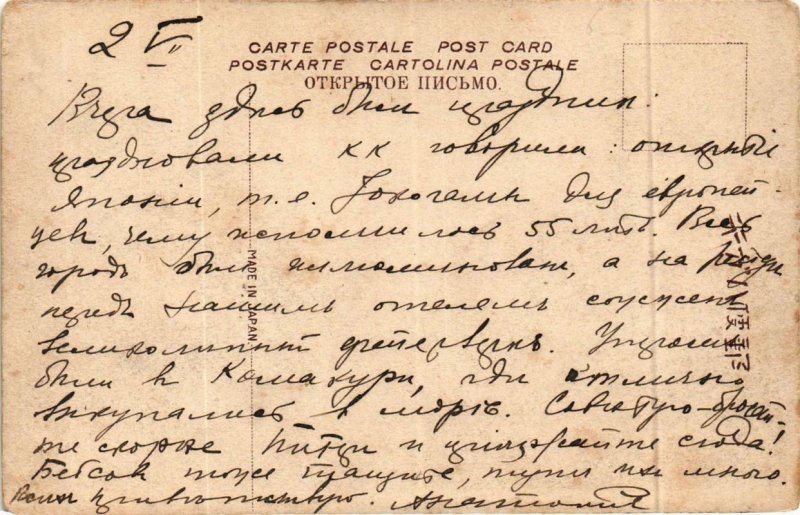 2 VII
CARTE POSTALE POST CARD
POSTKARTE CARTOLINA POSTALE
ОТКРЫТОЕ ПИСЬМО.
Вчера здесь был праздник:
праздновали кк говорили: открытіе
Японіи, т. е. Іокогамы для европей-
цев, чему исполнилось 55 лѣтъ. Весь
городъ был иллюминован, а на рейде
передъ нашимъ отелемъ сожжен
великолѣпный фейерверкъ. Утром
были в Камакури, где отлично
выкупались в морѣ. Советую - бросай-
те скорѣе и приезжайте сюда!
тоже тащите, тут их много.
Всѣм приветствую. Анатолий
MADE IN JAPAN